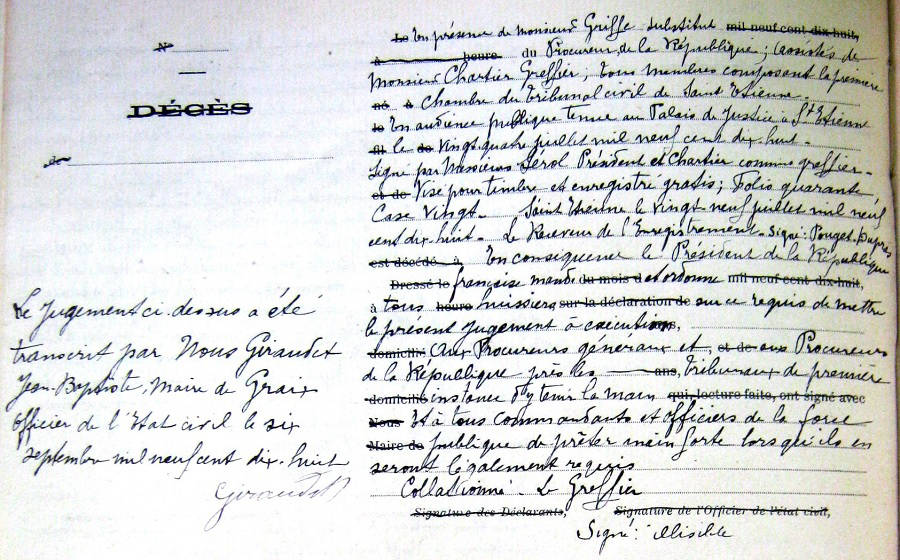 N°
DÉCÈS
du
Le jugement ci-dessus a été
transcrit par Nous Giraudet
Jean-Baptiste, Maire de Graix
officier de l'Etat civil le six
septembre mil neuf cent dix-huit
Giraudet
Le En présence de monsieur Griffe substitut mil neuf cent dix-huit,
à heure du Procureur de la République; assistés de
Monsieur Chartier Greffier; tous membres composant la première
né à Chambre du Tribunal civil de Saint Etienne.
le En audience publique tenue au Palais de Justice à St Etienne
fil le de vingt quatre juillet mil neuf cent dix huit.
Signé par Messieurs Serol Président et Chartier commis greffier.
et de Visé pour timbre et enregistré gratis; Folio quarante
Case Vingt. Saint Etienne le vingt neuf juillet mil neuf
cent dix-huit. Le Receveur de l'Enregistrement. Signé: Pouget-Dupres
est décédé à En conséquence le Président de la République
Dressé le française mande du mois d et ordonne mil neuf cent dix-huit,
à tous heure huissiers, sur la déclaration de sur ce requis de mettre
le présent jugement à exécution ans,
domicilié Aux Procureurs généraux et, et de aux Procureurs
de la République près les ans, tribunaux de première
domicilié instance d'y tenir la main qui, lecture faite, ont signé avec
Nous Et à tous commandants et officiers de la force
Maire de publique de prêter main forte lorsqu'ils en
seront légalement requis
Collationné. Le Greffier
Signature des Déclarants, Signature de l'Officier de l'état civil,
Signé: illisible